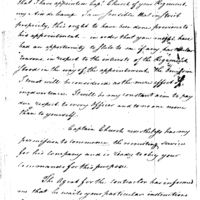 that I have appointed Capt Church of your Regiment
my Aid de Camp. I am sensible that in strict
propriety, this ought to have been done previous to
his appointment - in order that you might have
had an opportunity to state to me if any
reasons, in respect to the interests of the Regiment
stood in the way of the appointment. The
I trust will be considered not the mere effect of
inadvertence. It will be my constant aim to pay
due respect to every officer and to no one more
than to yourself.
Captain Church now thinks has my
permission to commence the recruiting service
for his company and is ready to obey your
commands for this purpose.
The Agent for the contractor has informed
me that he waits your particular instructions